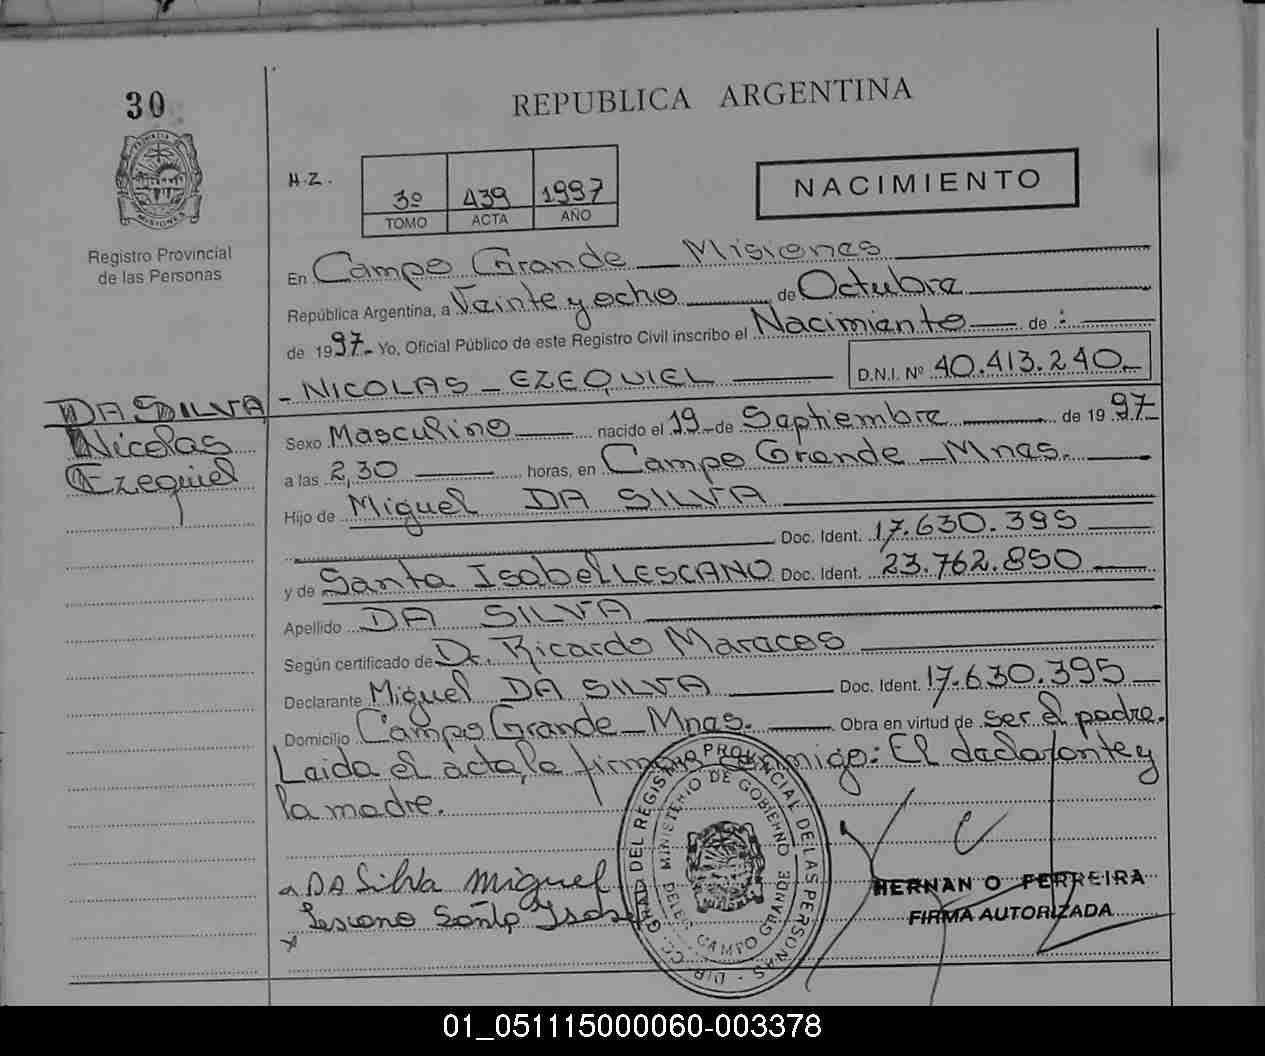 30
REPUBLICA ARGENTINA
PROVINCIA DE MISIONES
Registro Provincial
de las Personas
H.Z.
3º 439 1997
TOMO ACTA AÑO
NACIMIENTO
En Campo Grande Misiones
República Argentina, a Veinte y ocho de Octubre
de 1997. Yo, Oficial Público de este Registro Civil inscribo el Nacimiento de :
- NICOLAS - EZEQUIEL D.N.I. Nº 40.413.240
DA SILVA
Nicolas
Ezequiel
Sexo Masculino nacido el 19 de Septiembre de 1997
a las 2,30 horas, en Campo Grande - Mnes.
Hijo de Miguel DA SILVA
Doc. Ident. 17.630.395
y de Santa Isabel LESCANO Doc. Ident. 23.762.850
Apellido DA SILVA
Según certificado de Dr. Ricardo Maraces
Declarante Miguel DA SILVA Doc. Ident. 17.630.395
Domicilio Campo Grande - Mnes. Obra en virtud de ser el padre.
Leida el acta, la firman conmigo: El declarante y
la madre.
DA Silva Miguel
Lescano Santa Isabel
DIR. GRAL DEL REGISTRO PROVINCIAL DE LAS PERSONAS
MINISTERIO DE GOBIERNO
DELEG. CAMPO GRANDE
HERNAN O FERREIRA
FIRMA AUTORIZADA
01_051115000060-003378